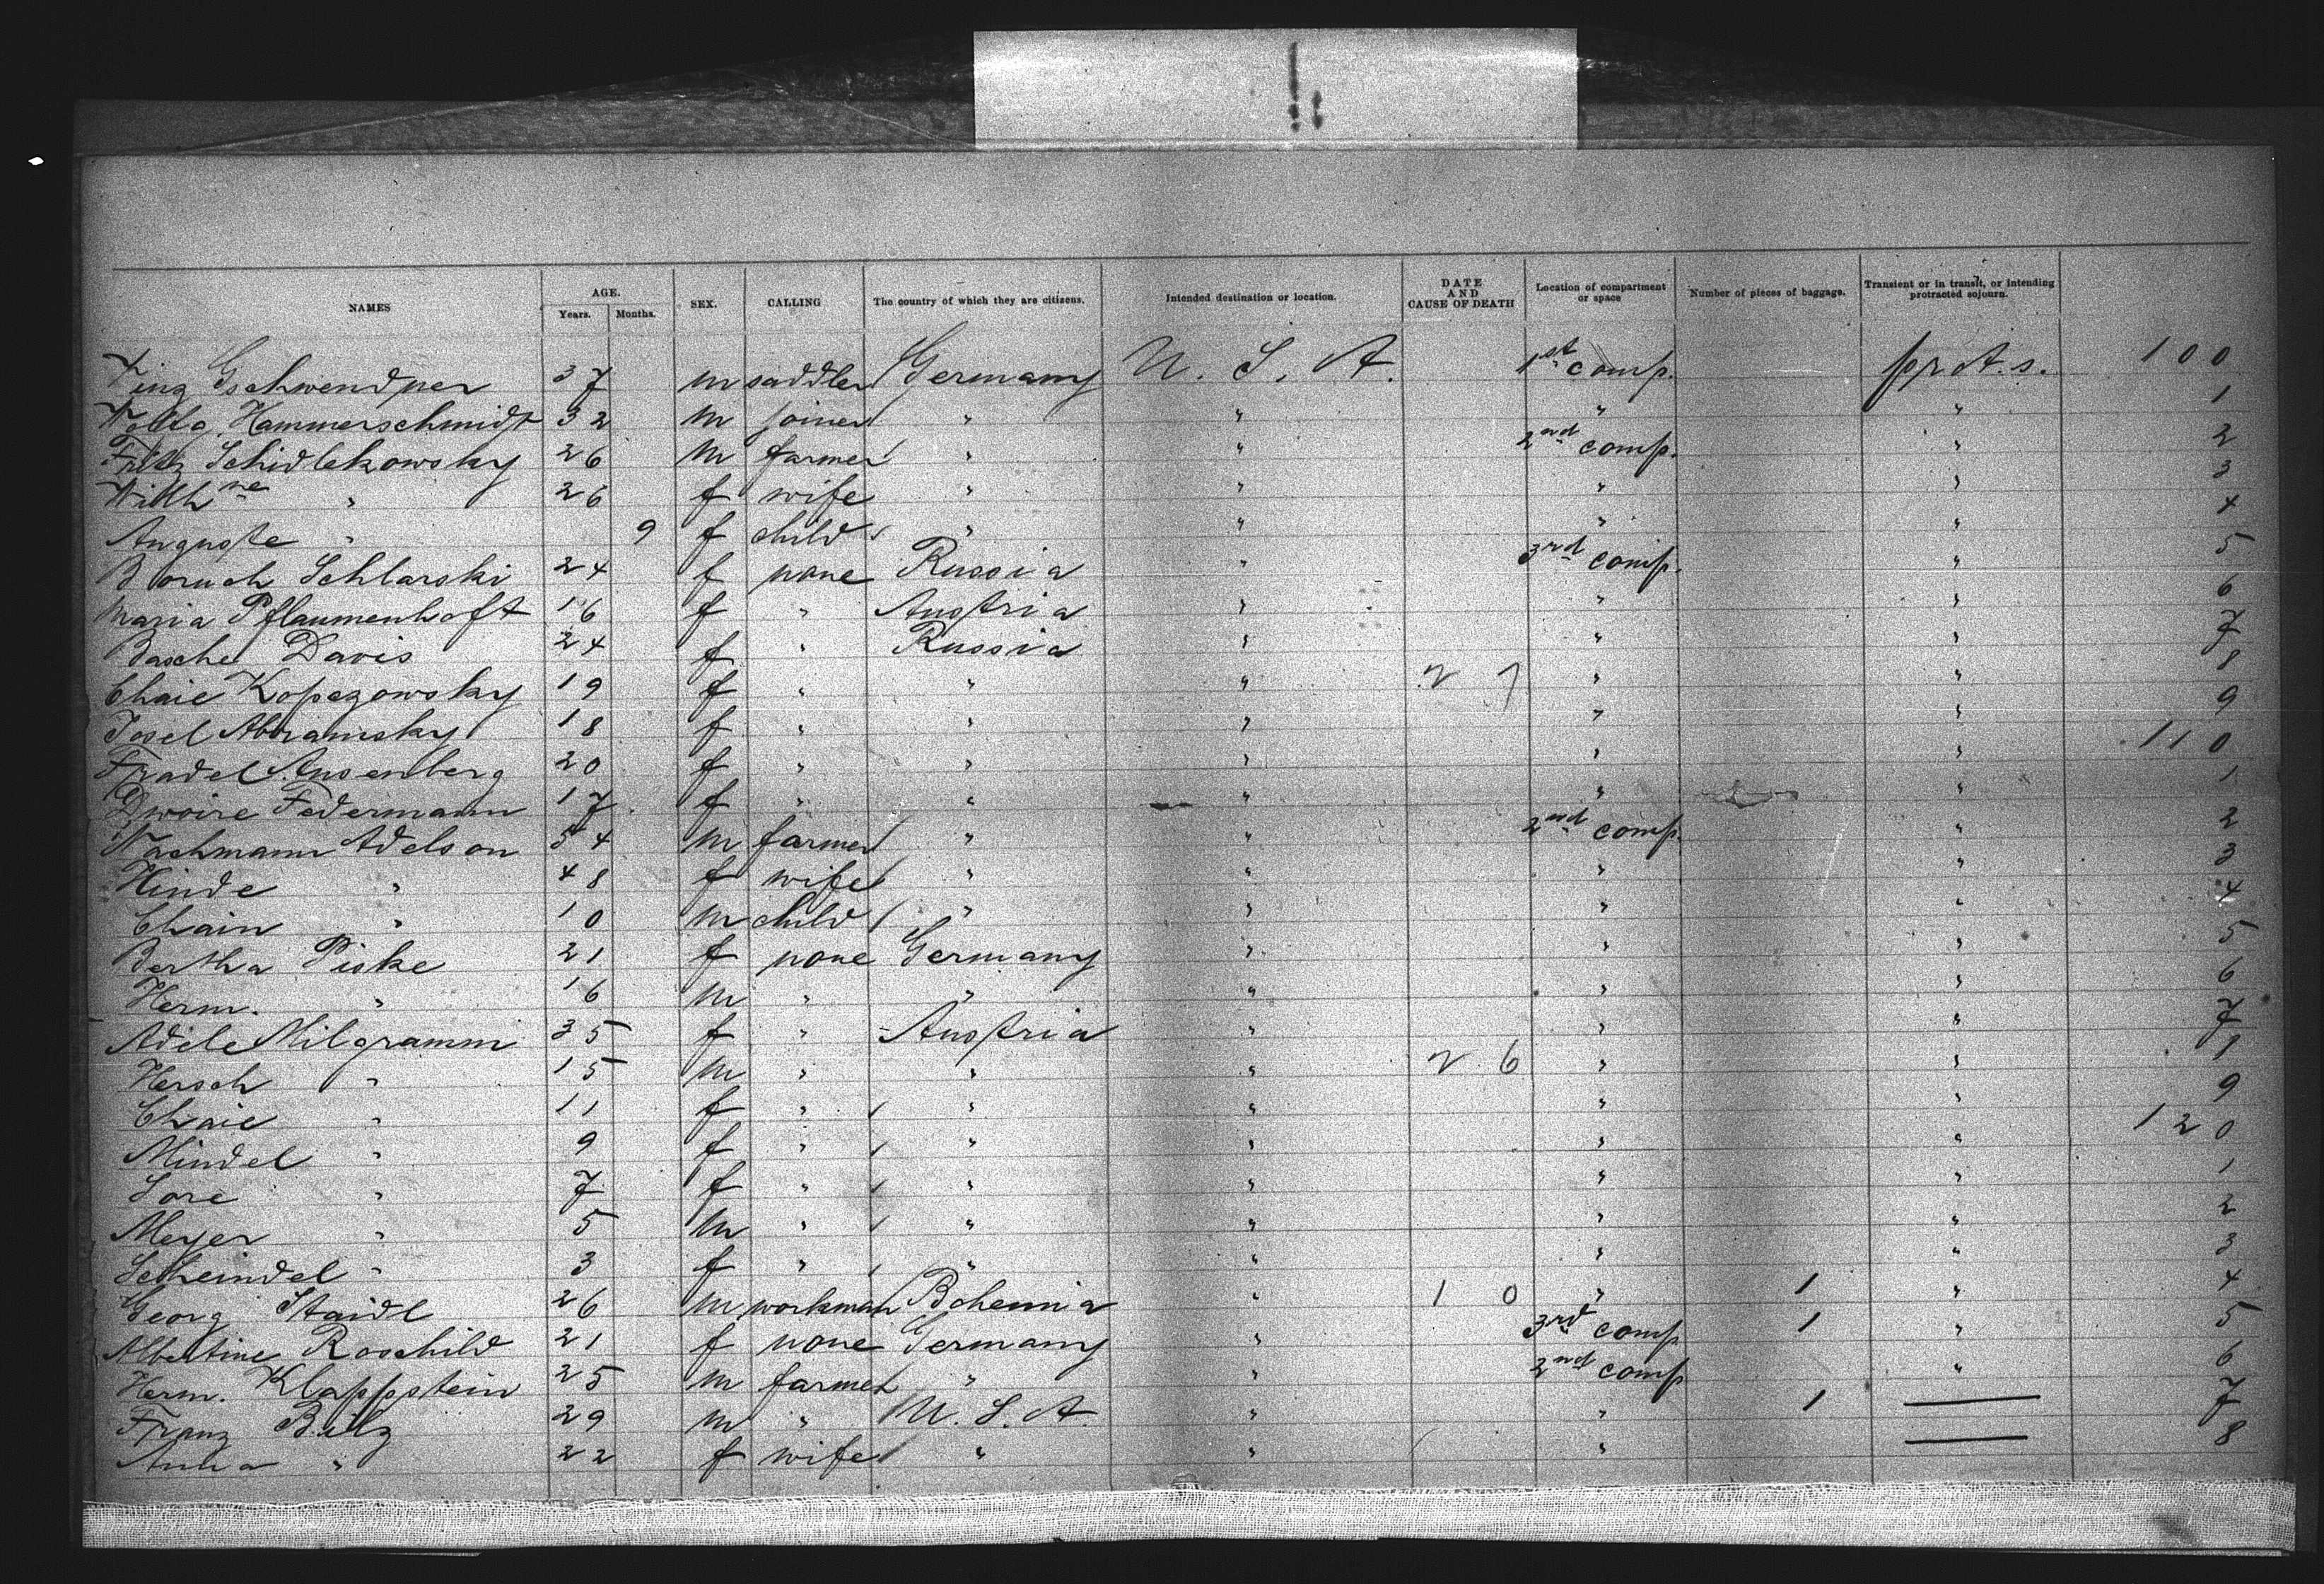 NAMES AGE. Years. Months. SEX. CALLING The country of which they are citizens. Intended destination or location. DATE AND CAUSE OF DEATH Location of compartment or space Number of pieces of baggage. Transient or in transit, or intending protracted sojourn.
Gschwendner 37 m saddler Germany U. S. A. 1st comp. prot. s. 100
Hammerschmidt 32 m joiner " " " " 1
Fritz Schidlekowsky 26 m farmer " " 2nd comp. " 2
Wilh ne " 26 f wife " " " " 3
Auguste " 9 f child " " " " 4
Boruch Schlarski 24 f none Russia " 3rd comp. " 5
Maria Pflaumenhoft 16 f " Austria " " " 6
Basche Davis 24 f " Russia " " " 7
Chaie Kopezowsky 19 f " " " 27 " " 8
Josel Abramsky 18 f " " " " " 9
Fradel Ansenberg 20 f " " " " " 110
Dwoire Federmann 17 f " " " " " 1
Nachmann Adelson 54 m farmer " " 2nd comp. " 2
Hinde " 48 f wife " " " " 3
Chain " 10 m child " " " " 4
Bertha Piske 21 f none Germany " " " 5
Herm. " 16 m " " " " " 6
Adele Milgramm 35 f " Austria " " " 7
Hersch " 15 m " " " 26 " " 8
Chaie " 11 f " " " " " 9
Mindel " 9 f " " " " " 120
Sore " 7 f " " " " " 1
Meyer " 5 m " " " " " 2
Scheindel " 3 f " " " " " 3
Georg Staidl 26 m workman Bohemia " 10 " 1 " 4
Albertine Roschild 21 f none Germany " 3rd comp 1 " 5
Herm. Klappstein 25 m farmer " " 2nd comp " 6
Franz Bilz 29 m " U. S. A. " " 1 — 7
Anna " 22 f wife " " " — 8